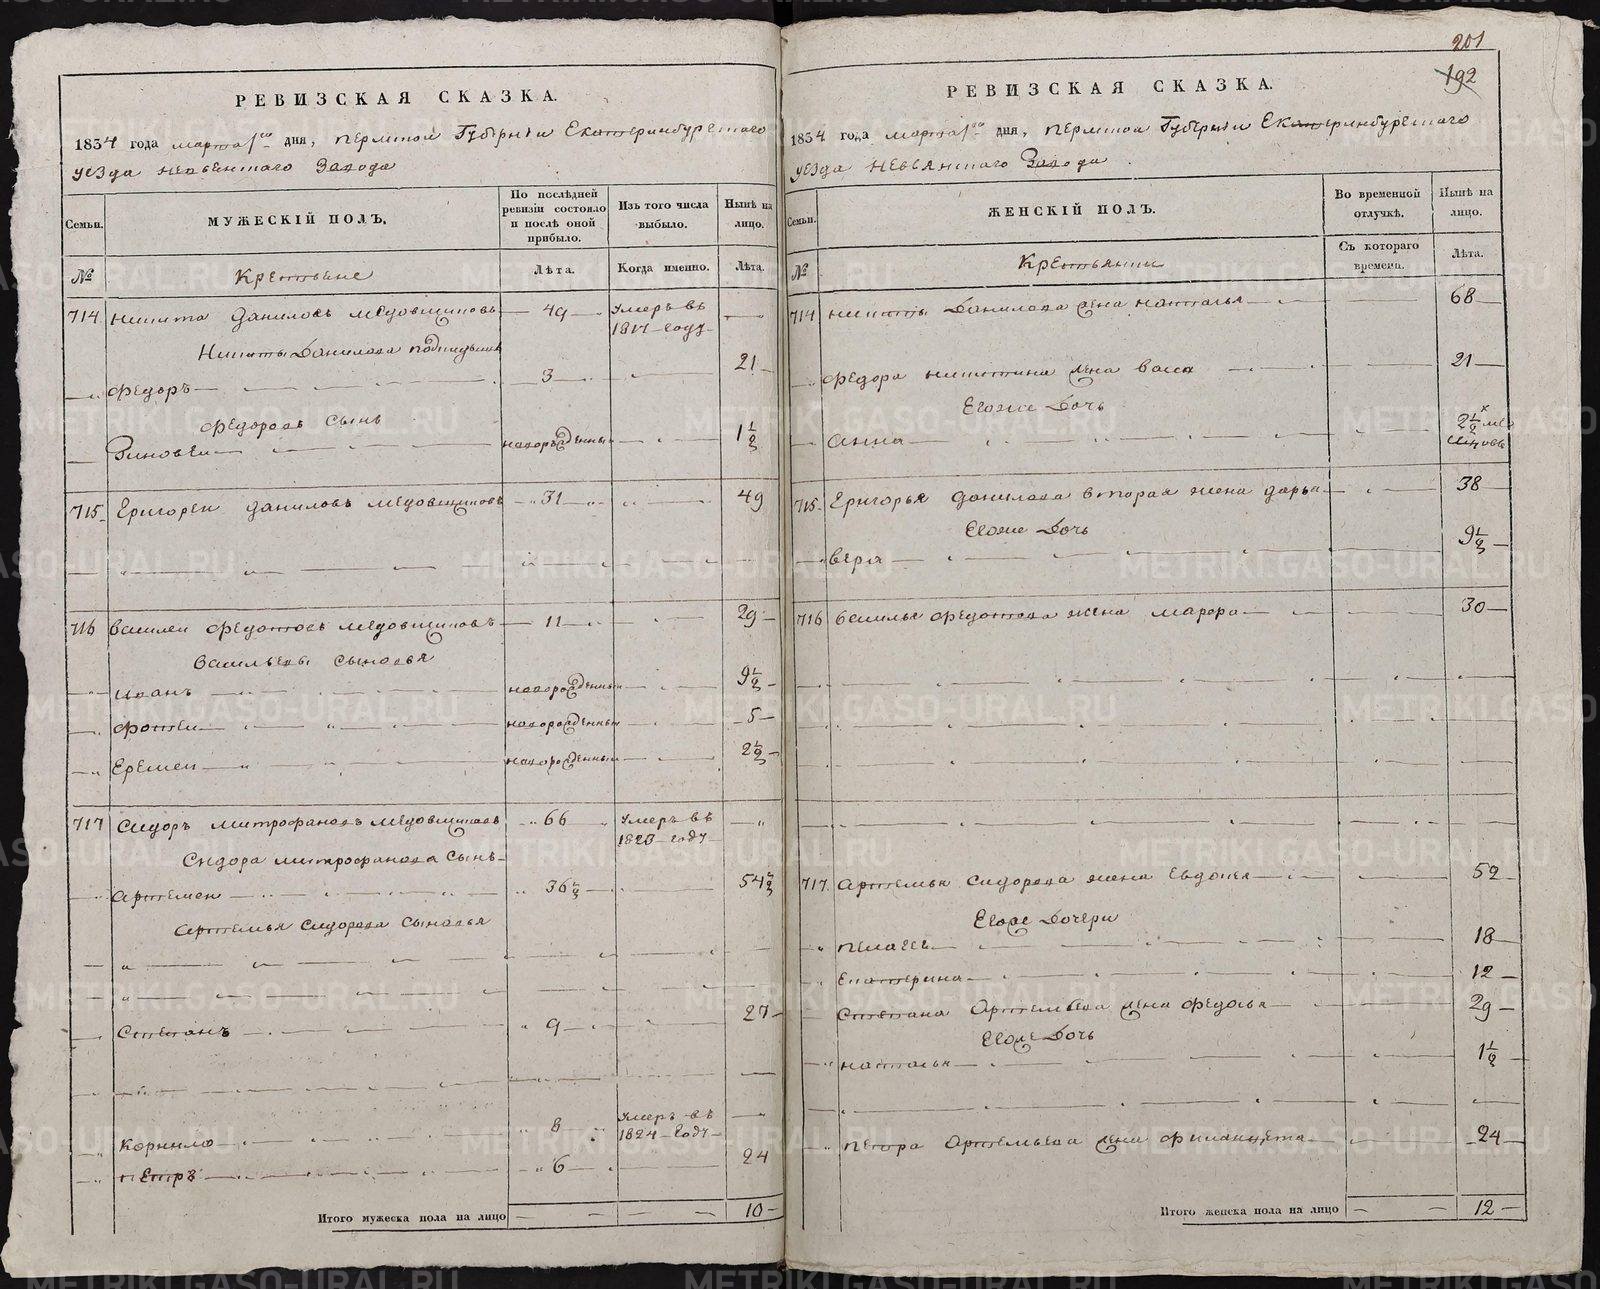 РЕВИЗСКАЯ СКАЗКА.
1834 года марта 1го дня, Пермской Губернии Екатеринбургского
уезда Невьянскаго Завода
Семьи.
МУЖЕСКІЙ ПОЛЪ.
По послѣдней ревизіи состояло и послѣ оной прибыло.
Изъ того числа выбыло.
Нынѣ на лицо.
№
Крестьяне
Лѣта.
Когда именно.
Лѣта.
714 Никита Даниловъ Медовщиковъ 49 умеръ въ 1817 году
Никиты Данилова
Федоръ 3 21
Федоровъ сынъ
Зиновеи новорожденныи 1 1/2
715 Григореи Даниловъ Медовщиковъ 31 49
716 Василеи Федотовъ Медовщиковъ 11 29
Васильевы сыновья
Иванъ новорожденныи 9 1/2
Фотеи новорожденныи 5
Еремеи новорожденныи 2 1/2
717 Сидоръ Митрофановъ Медовщиковъ 66 умеръ въ 1823 году
Сидора Митрофанова сынъ
Артемеи 36 1/2 54 1/2
Артемья Сидорова сыновья
Степанъ 9 27
Корнило 8 умеръ въ 1824 году
Петръ 6 24
Итого мужеска пола на лицо 10
201
192
РЕВИЗСКАЯ СКАЗКА.
1834 года марта 1го дня, Пермской Губернии Екатеринбургского
уезда Невьянскаго Завода
Семьи.
ЖЕНСКІЙ ПОЛЪ.
Во временной отлучкѣ.
Нынѣ на лицо.
№
Крестьянки
Съ котораго времени.
Лѣта.
714 Никиты Данилова жена Наталья 68
Федора Никитина жена Васса 21
Егоже дочь
Анна 2 1/2
715 Григорья Данилова вторая жена Дарья 38
Егоже дочь
Вера 9 1/2
716 Василья Федотова жена Марфа 30
717 Артемья Сидорова жена Евдокея 52
Егоже дочери
Пелагея 18
Екатерина 12
Степана Артемьева жена Федосья 29
Егоже дочь
Наталья 1 1/2
Петра Артемьева жена 24
Итого женска пола на лицо 12
METRIKI.GASO-URAL.RU